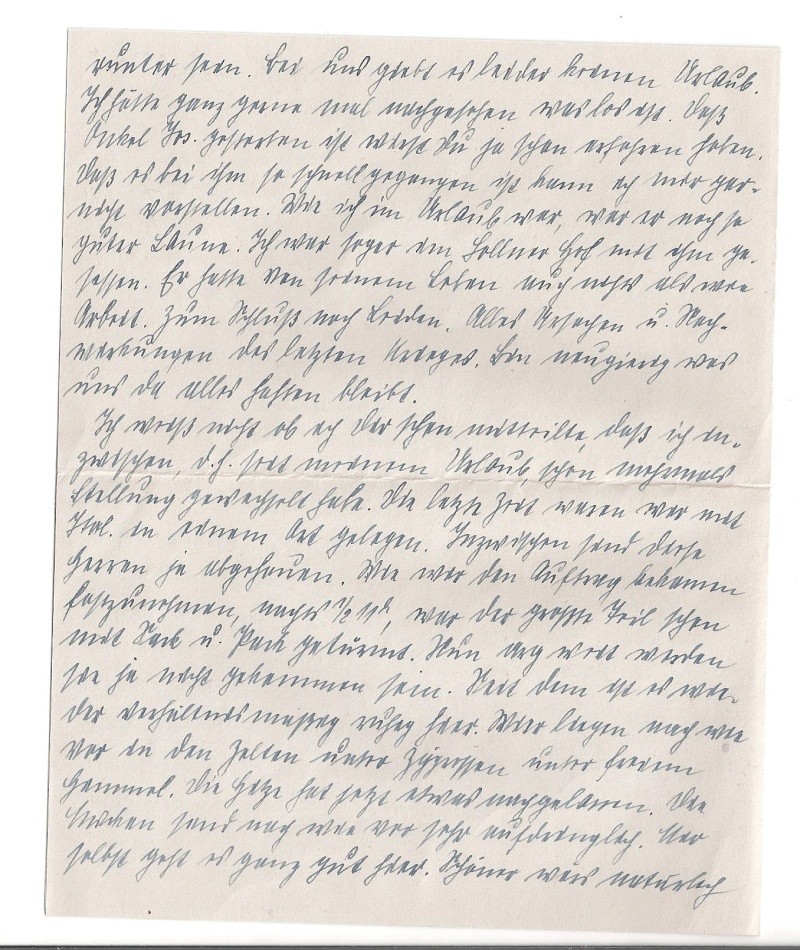 runter sein. Bei uns giebt es leider keinen Urlaub.
Ich hätte ganz gerne mal nachgesehen was los ist. Daß
Onkel Jos. gestorben ist wirst Du ja schon erfahren haben.
Daß es bei ihm so schnell gegangen ist kann ich mir gar-
nicht vorstellen. Wie ich im Urlaub war, war er noch so
guter Laune. Ich war sogar im Hof mit ihm ge-
sessen. Er hatte von seinem Leben auch nichts als wie
Arbeit. Zum Schluß noch Leiden. Alles Ursachen u. Nach-
wirkungen des letzten Krieges. Bin neugierig was
uns da alles haften bleibt.
Ich weiß nicht ob ich Dir schon mitteilte, daß ich in-
zwischen, d.h. seit meinem Urlaub, schon mehrmals
Stellung gewechselt habe. Die letzte Zeit waren wir mit
Ital. in einem Ort gelegen. Inzwischen sind diese
Herren ja abgehauen. Wie wir den Auftrag bekamen
festzunehmen, nachts ½ 11h, war der größte Teil schon
mit Sack u. Pack getürmt. Nun arg weit werden
sie ja nicht gekommen sein. Seit dem ist es wie-
der verhältnismässig ruhig hier. Wir liegen nach wie
vor in den Zelten unter Zypressen unter freiem
Himmel. Die Hitze hat jetzt etwas nachgelassen. Die
Mücken sind nach wie vor sehr aufdringlich. Mir
selbst geht es ganz gut hier. Schöner wärs natürlich